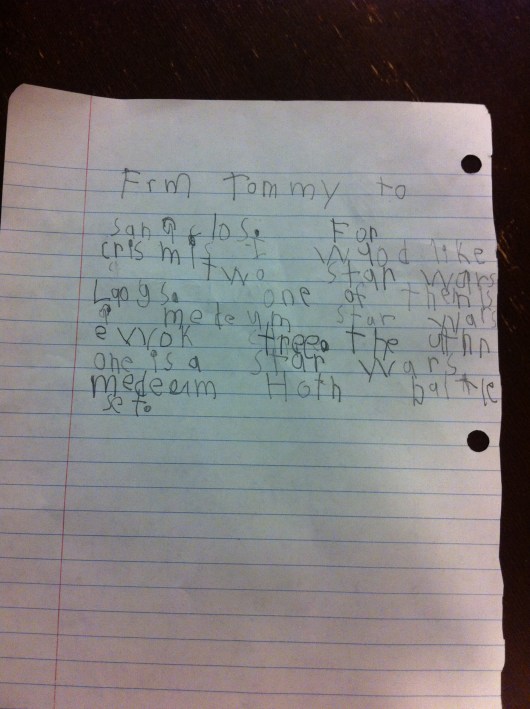 Frm Tommy to
santa clos. For
crismis I wyod like
two star wars
Laoys. one of them is
a medeym star wars
ewok stree. The uthr
one is a star wars
medeum Hoth baltle
set.